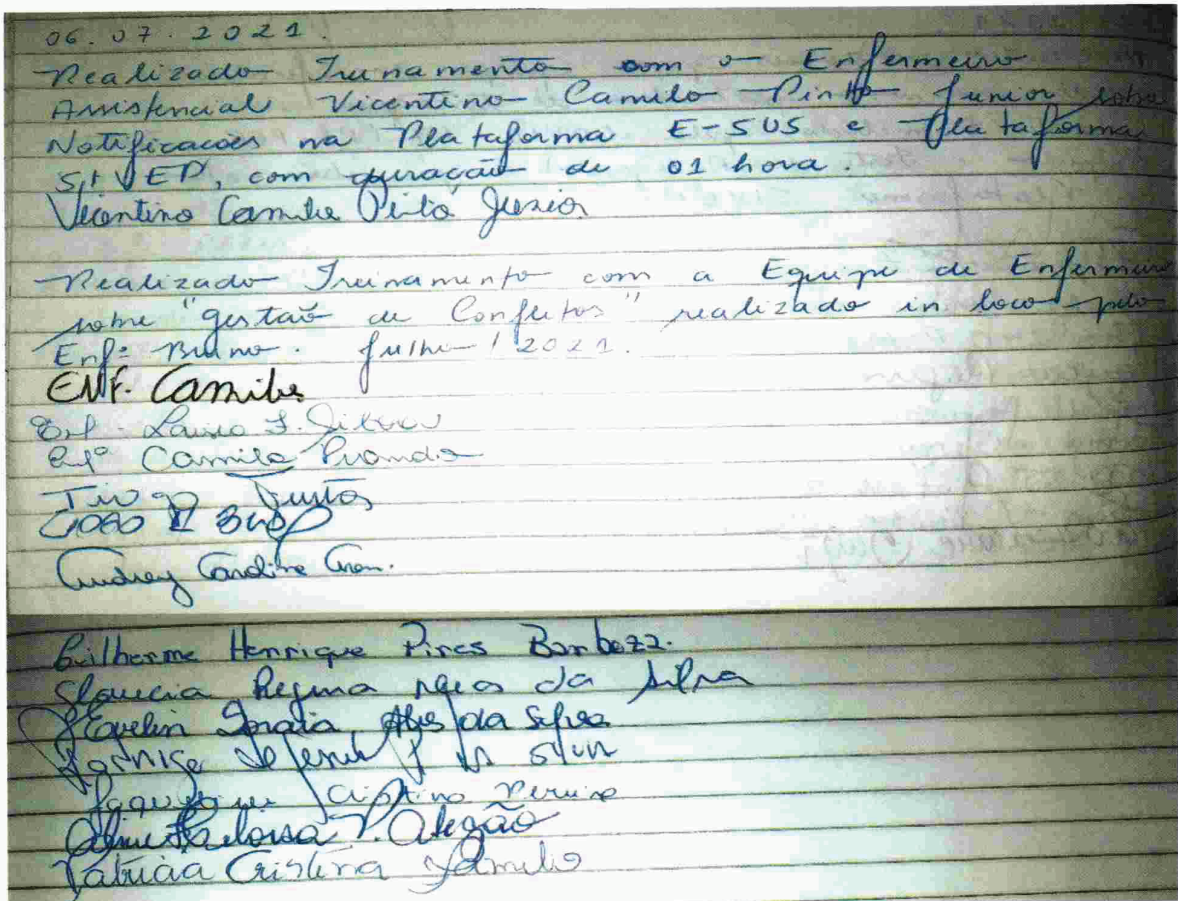 06.07.2021.
Realizado Treinamento com o Enfermeiro
Assistencial Vicentino Camilo Pinto Junior sobre
Notificações na Plataforma E-SUS e Plataforma
SIVEP, com duração de 01 hora.
Vicentino Camilo Pinto Junior
Realizado Treinamento com a Equipe de Enfermeiro
sobre "gestão de Conflitos" realizado in loco pelo
Enfº Bruno. Julho/2021.
ENF. Camila
Enf. F. Silva
Enfª Camila
Audrey Caroline
Guilherme Henrique Pires Barboza.
Regina da Silva
Evelin Alves da Silva
Cristina Pereira
Aline Heloisa P.
Patricia Cristina